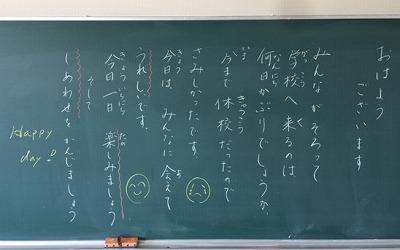 おはよう
ございます
みんながそろって
学校へ来るのは
何日かぶりでしょうか。
今まで休校だったので
さみしかったです。
今日は、みんなに会えて
うれしいです。
今日一日 楽しみましょう
そして
しあわせをかんじましょう
Happy
day!